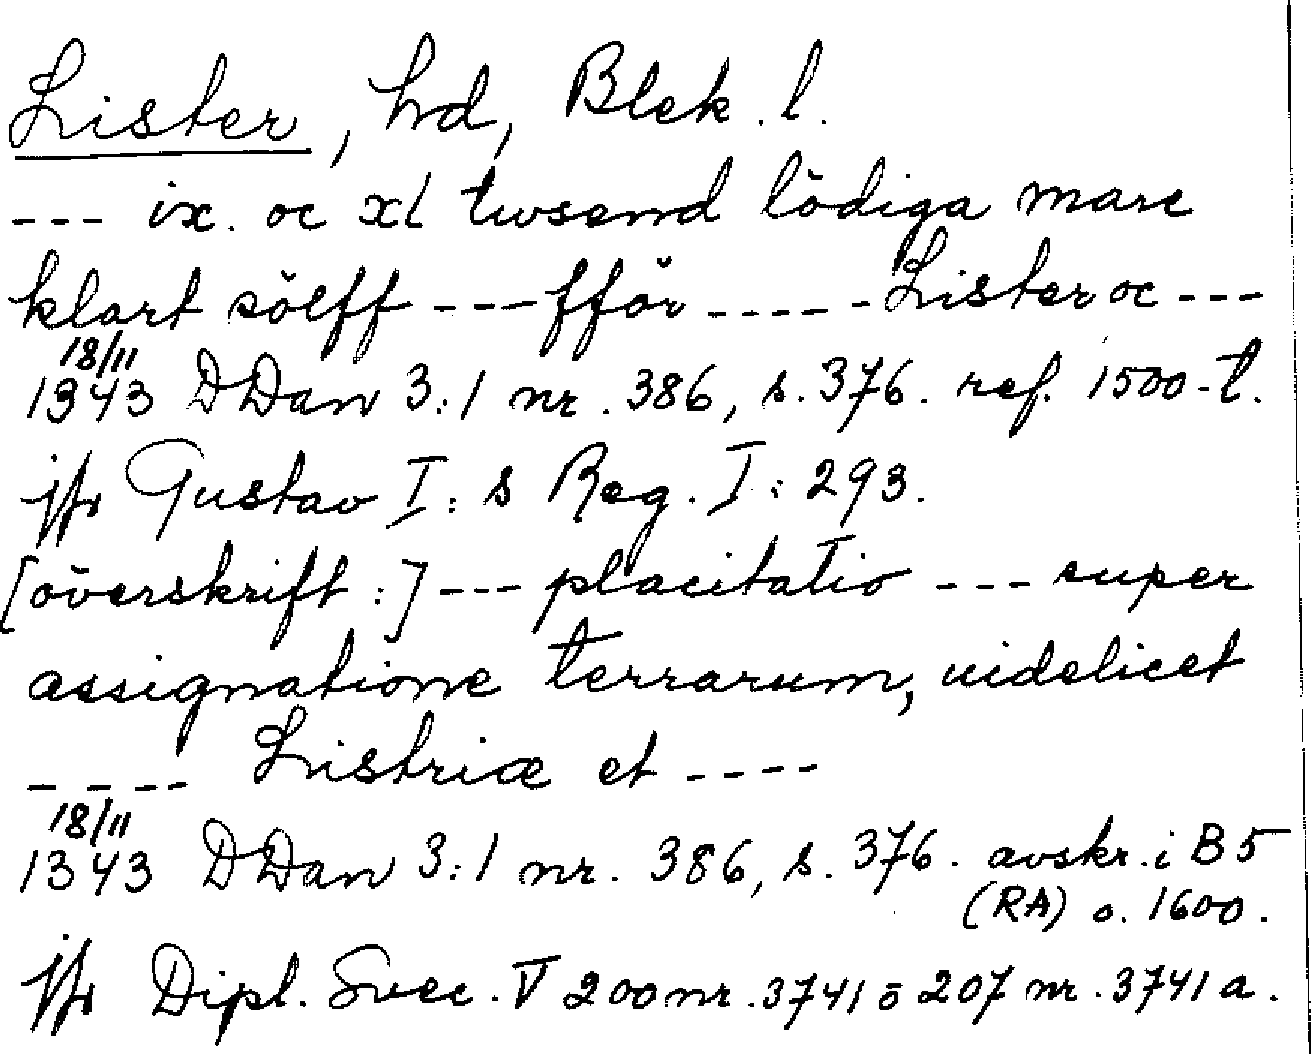 Lister, hd, Blek. l.
--- ix. oc xl twsend lödiga marc
klart sölff --- fför ----- Lister oc ---
18/11
1343 DDan 3:1 nr. 386, s. 376. ref. 1500-t.
jfr Gustav I:s Reg. I: 293.
[överskrift:] --- placitatio --- super
assignatione terrarum, uidelicet
---- Listriæ et ----
18/11
1343 DDan 3:1 nr. 386, s. 376. avskr. i B 5
(RA) o. 1600.
jfr Dipl. Svec. V 200 nr. 3741 o 207 nr. 3741 a.